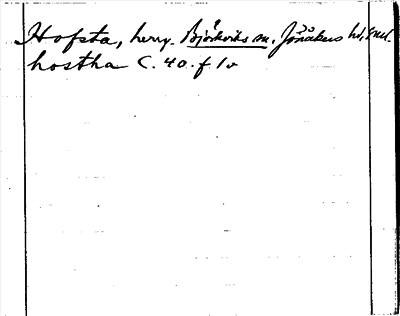 Hofsta, herrg. Björkviks sn. Jönåkers hd, Sml.
hostha C. 40. f 1v